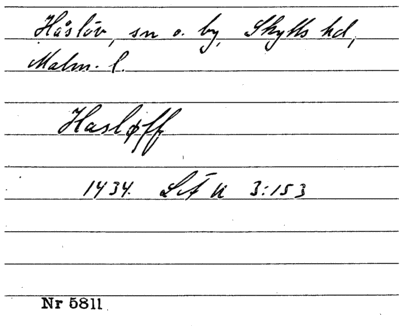 Håslöv, sn o. by, Skytts hd,
Malm. l.
Hasløff
1434. LÅ u 3:153
Nr 5811